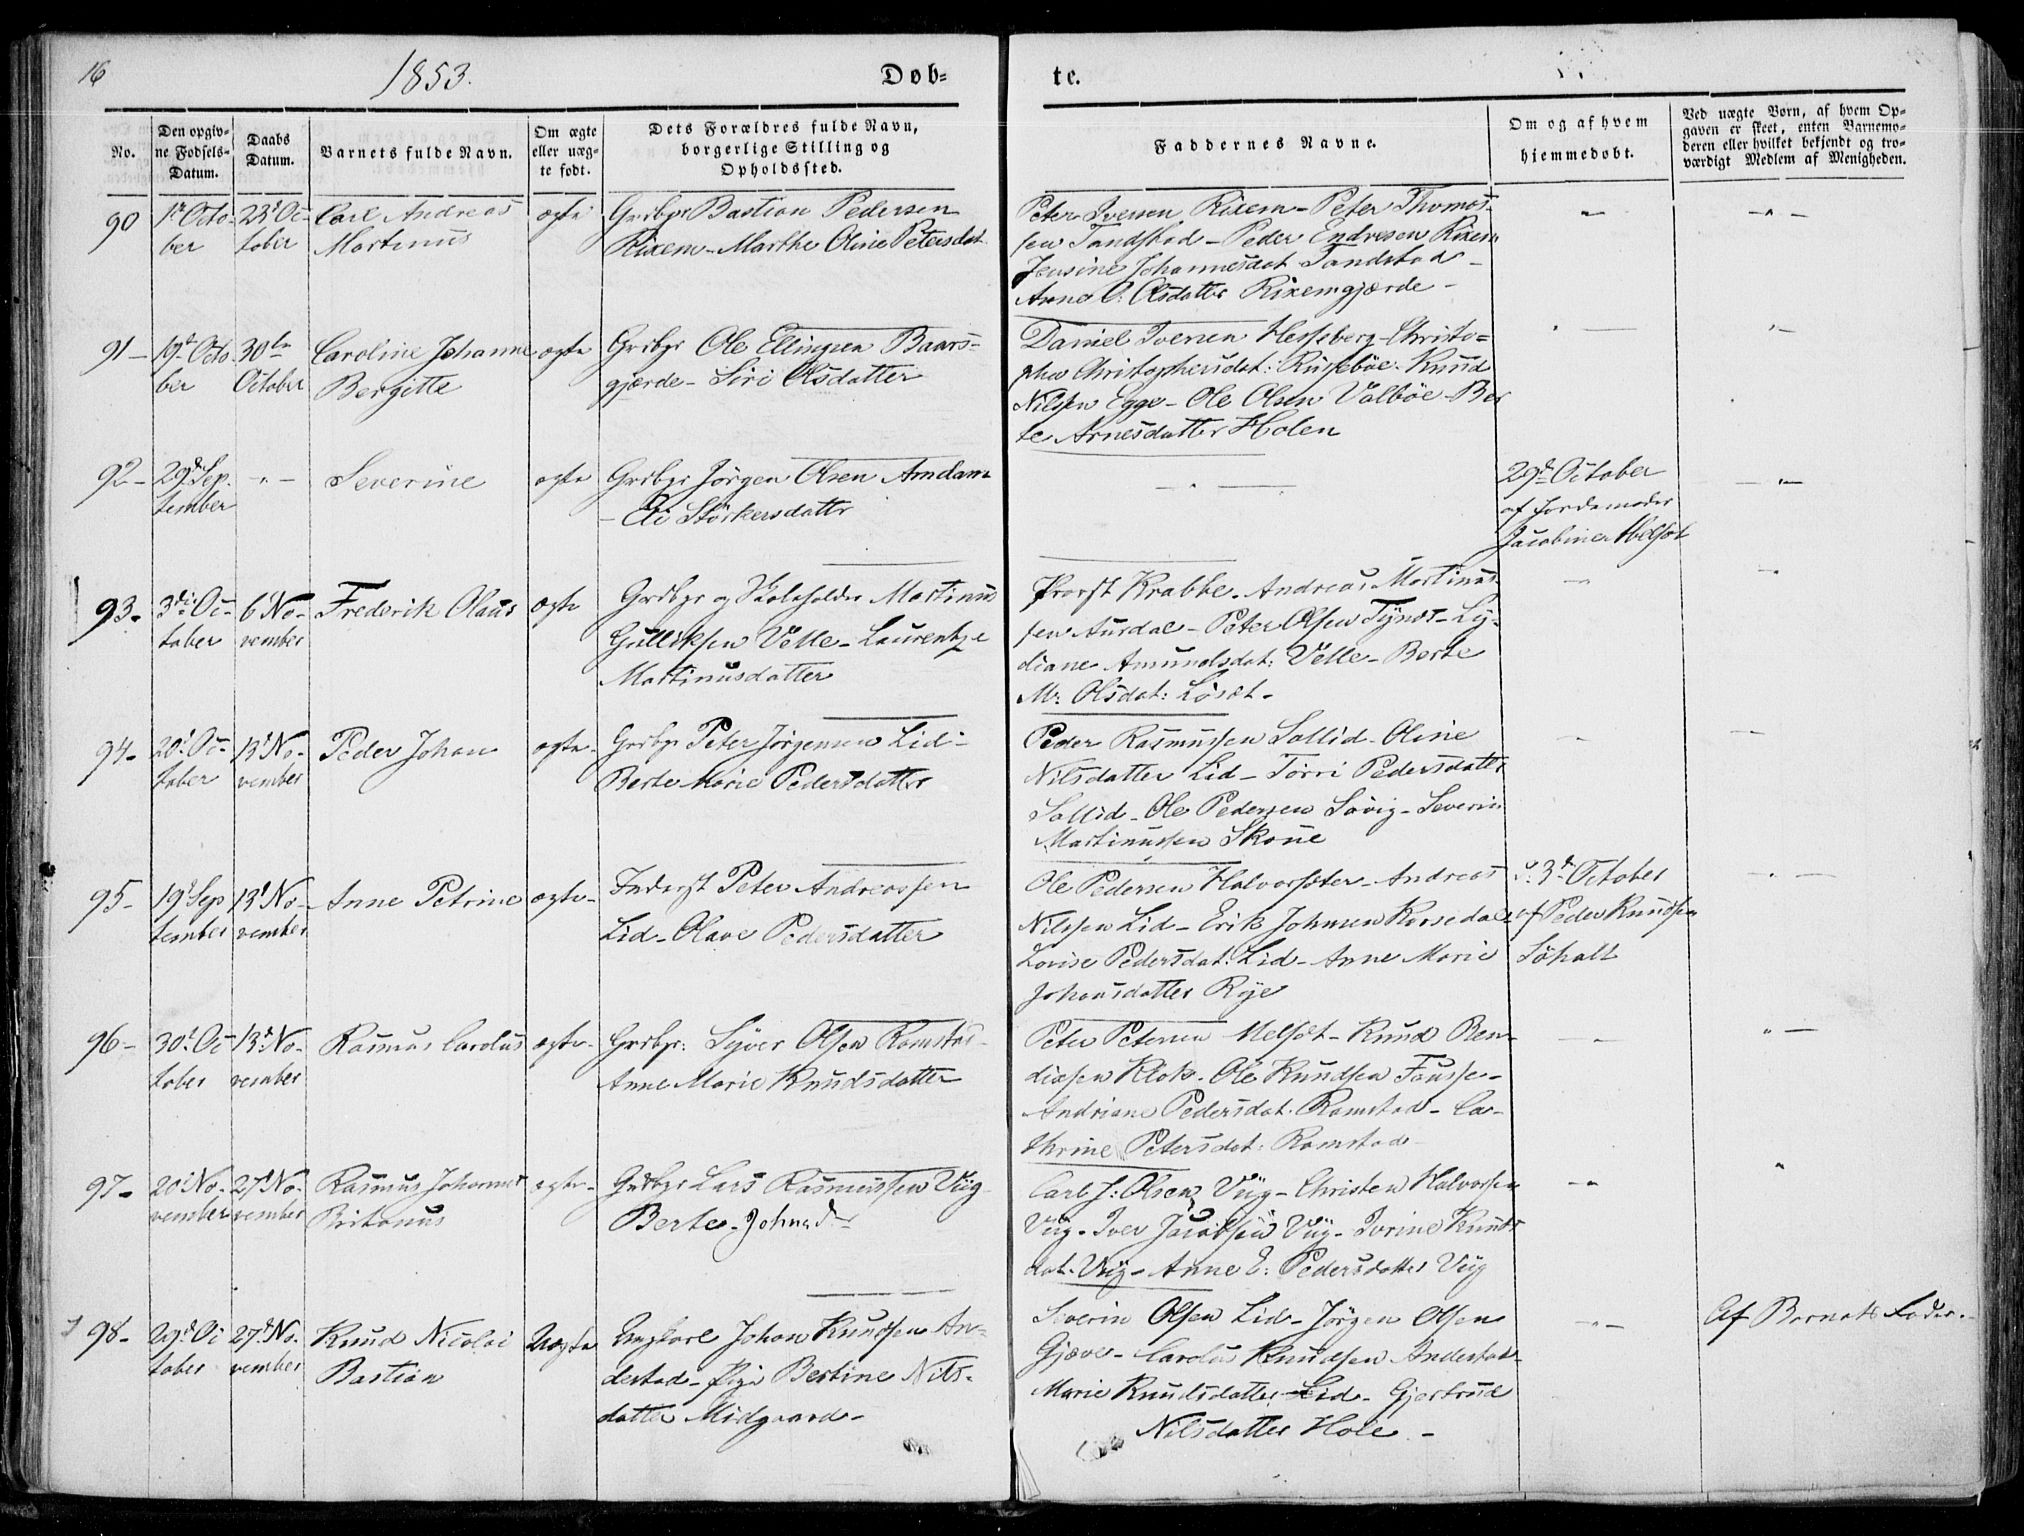 16
1853.
Døb-
te.
No.
Den opgiv-
ne Fødsels-
Datum.
Daabs
Datum.
Barnets fulde Navn.
Om ægte
eller uæg-
te født.
Dets Forældres fulde Navn,
borgerlige Stilling og
Opholdssted.
Faddernes Navne.
Om og af hvem
hjemmedøbt.
Ved uægte Børn, af hvem Op-
gaven er skeet, enten Barnemo-
deren eller hvilket bekjendt og tro-
værdigt Medlem af Menigheden.
90
1ste Octo-
ber
23d Oc-
tober
Carl Andreas
Martinus
ægte
Grdbgr Bastian Pedersen
Rixem - Marthe Oline Petersdat
Peter Iversen Rixem - Peter Thomas-
sen Tandstad - Peder Endresen Rixem
Jensine Johannesdat Tandstad -
Anne O: Olsdatter Rixemgjærde -
91 -
19d Octo
ber
30te
October
Caroline Johanne
Bergitte
ægte
Grdbgr Ole Ellingsen Baars-
gjærde - Siri Olsdatter
Daniel Iversen Hessberg - Christo-
pha Christophersdat: - Knud
Nilssen Egge - Ole Olsen Valbøe - Ber
te Arnesdatter Holen
92 -
29d Sep.
tember
- " -
Severine
ægte
Grdbgr Jørgen Olsen Amdam
- Eli Størkersdatter
- " -
29d October
af Jordemoder
Jacobine Melsæt
- " -
93 -
3die Oc-
tober
6 No-
vember
Frederik Olaus
ægte
Grdbgr og Skoleholder Martinus
Gulliksen Velle - Laurentze
Martinusdatter
Provst Krabbe - Andreas Martinus-
sen Aursdal - Peter Olsen Tynes - Ly-
diane Amundsdat: Velle - Berte
M: Olsdat: Løset -
94 -
20d Oc-
tober
13d No-
vember
Peder Johan
ægte -
Grdbgr Peter Jørgensen Lid -
Berte Marie Pedersdatter
Peder Rasmussen Sollid - Oline
Nilsdatter Lid - Tørri Pedersdatter
Sollid - Ole Pedersen Søvig - Severin
Martinussen Skoue
95 -
19d Sep
tember
13d No-
vember
Anne Petrine
ægte -
Inderst Peter Andreassen
Lid - Olave Pedersdatter
Ole Pedersen Halvorsæter - Andreas
Nilssen Lid - Erik Johnsen Korsedal
Lovise Pedersdat: Lid - Anne Marie
Johansdatter Rye
d. 3d October
af Peder Knudsen
Søholt
- " -
96 -
30d Oc
tober
13d No-
vember
Rasmus Carolus
ægte -
Grdbgr: Syver Olsen Ramstad -
Anne Marie Knudsdatter
Peter Petersen Melsæt - Knud Ben-
dixsen Klok - Ole Knudsen Fausse -
Andriane Pedersdat. Ramstad - Ca-
thrine Petersdat: Ramstad
- " -
97 -
20d No-
vember
27d No-
vember
Rasmus Johannes
Britanus
ægte -
Grdbgr Lars Rasmussen Viig
Berte - Johnsd -
Carl J: Olsen Viig - Christen Halvorsen
Viig - Iver Jacobsen Viig - Ivrine Knuds
dat. Viig - Anne E: Pedersdatter Viig
98 -
29d Oc
tober
27d No-
vember
Knud Nicolai
Bastian
Uægte
Ungkarl Johan Knudsen An-
destad - Pige Bertine Nils-
datter Midgaard -
Severin Olsen Lid - Jørgen Olsen
Gjæve - Carolus Knudsen Andestad -
Marie Knudsdatter Lid - Gjertrud
Nilsdatter Hole -
- " -
Af Barnets Fader -